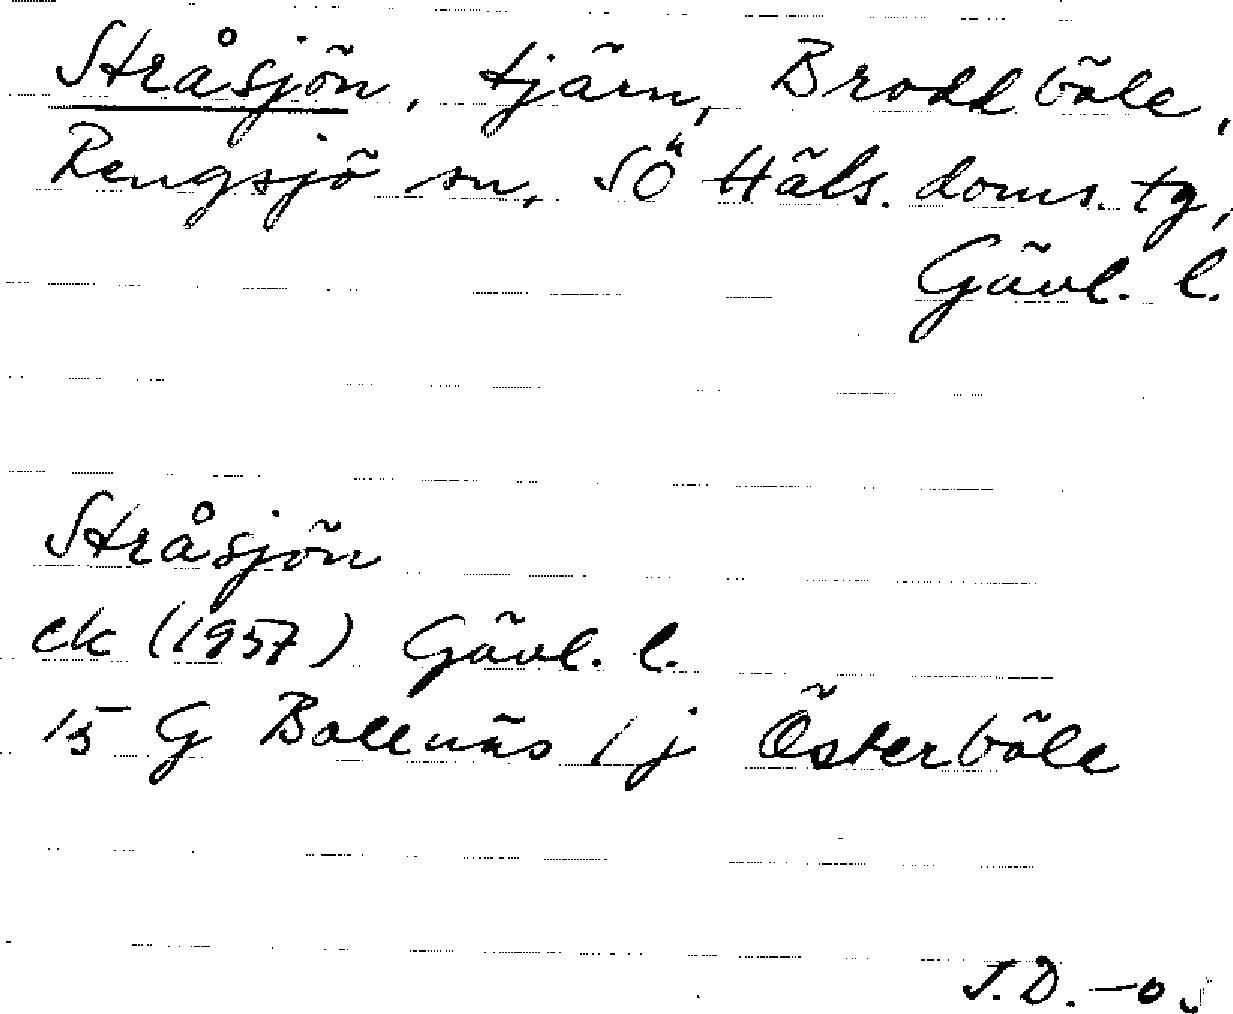 Stråsjön, tjärn, Broddböle,
Rengsjö sn, SÖ Häls. doms. tg,
Gävl. l.
Stråsjön
ek (1957) Gävl. l.
15 G Bollnäs 1 j Österböle
J.D.